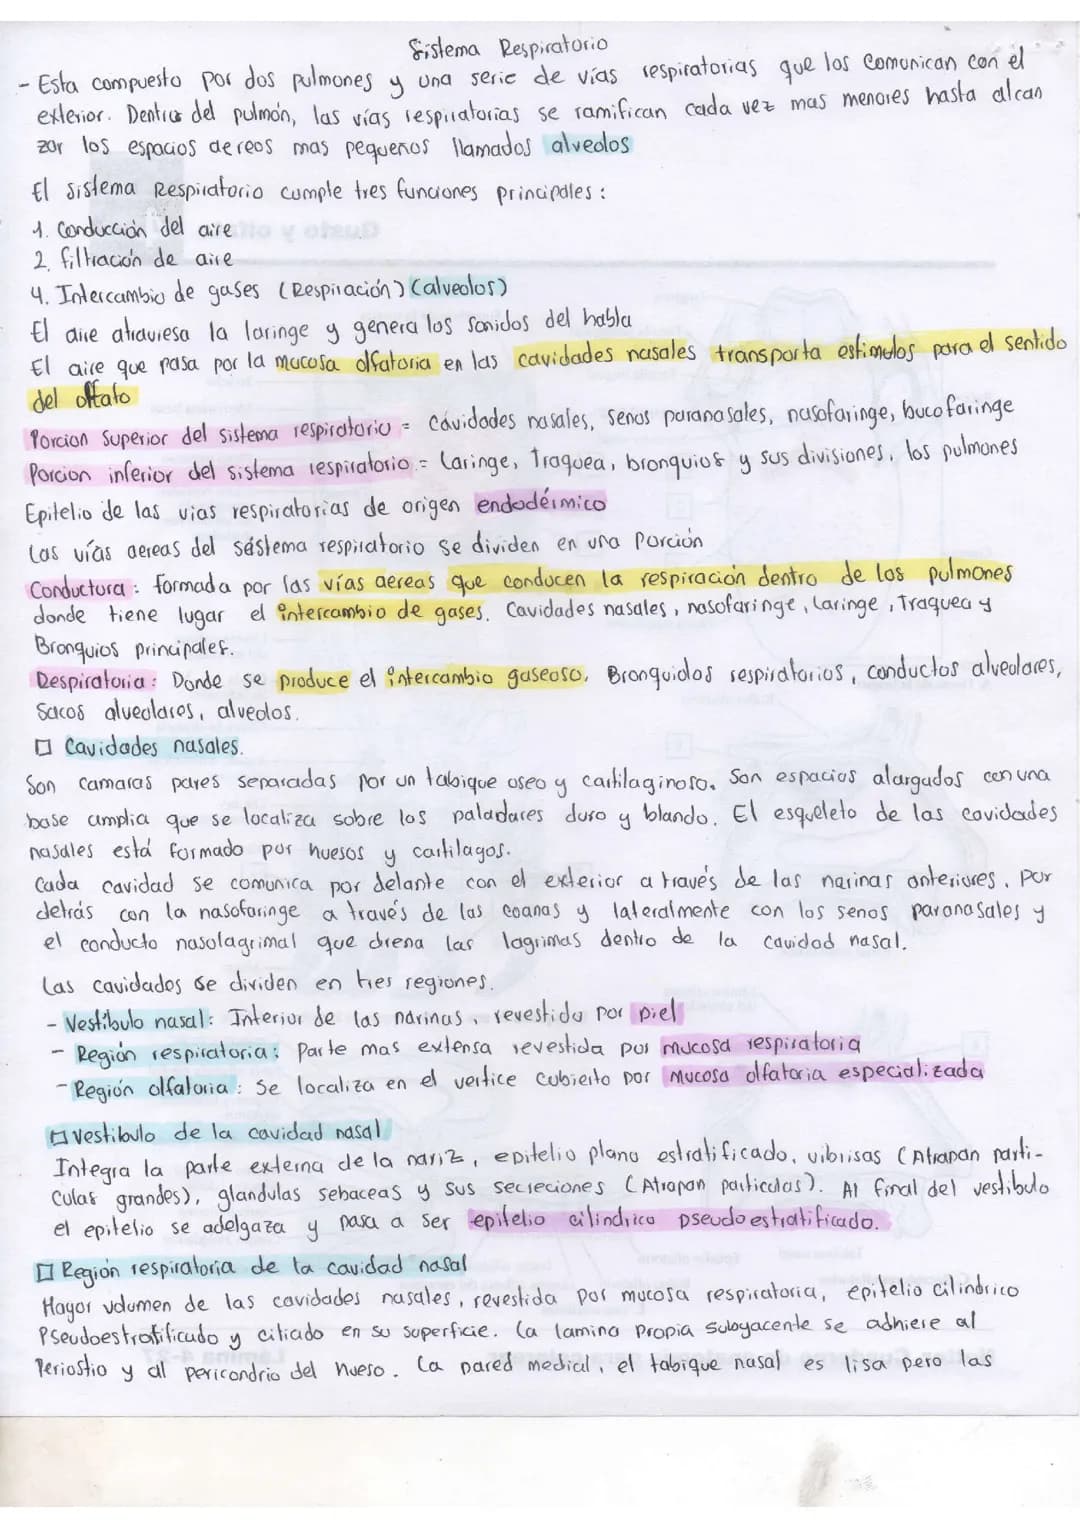 Sistema Respiratorio
- Esta compuesto por dos pulmones y una serie de vías respiratorias que los comunican con el
exterior. Dentros del pulmón, las vías respiratorias se ramifican cada vez mas menores hasta alcan
zar los espacios aereos mas pequeños llamados alveolos
El sistema Respiratorio cumple tres funciones principales:
1. Conducción del aire
2. filtración de aire
4. Intercambio de gases (Respiración) (alveolos)
El aire atraviesa la laringe y genera los sonidos del habla
El aire que pasa por la mucosa olfatoria en las cavidades nasales transporta estimulos para el sentido
del olfato
Porcion Superior del sistema respiratorio = Cavidades nasales, senos paranasales, nasofaringe, bucofaringe
Porcion inferior del sistema respiratorio = Laringe, Traquea, bronquios y sus divisiones, los pulmones
Epitelio de las vias respiratorias de origen endodérmico
Las vías aereas del sistema respiratorio se dividen en una Porción
Conductora: formada por las vías aereas que conducen la respiración dentro de los pulmones
donde tiene lugar el intercambio de gases. Cavidades nasales, nasofaringe, Laringe, Traquea y
Bronquios principales.
Respiratoria: Donde se produce el intercambio gaseoso. Bronquiolos respiratorios, conductos alveolares,
Sacos alveolares, alveolos.
□ Cavidades nasales.
Son camaras pares separadas por un tabique oseo y cartilaginoso. Son espacios alargados con una
base amplia que se localiza sobre los paladares duro y blando. El esqueleto de las cavidades
nasales está formado por huesos y cartilagos.
Cada cavidad se comunica por delante con el exterior a través de las narinas anteriores, por
detrás con la nasofaringe a través de las coanas y lateralmente con los senos paranasales y
el conducto nasolagrimal que drena las lagrimas dentro de la cavidad nasal.
Las cavidades se dividen en tres regiones.
- Vestíbulo nasal: Interior de las narinas, revestido por piel
- Región respiratoria: Parte mas extensa revestida por mucosa respiratoria
- Región olfatoria: Se localiza en el vertice cubierto por mucosa olfatoria especializada
□ Vestibulo de la cavidad nasal
Integra la parte externa de la nariz, epitelio plano estratificado, vibrisas (Atrapan parti-
culas grandes), glandulas sebaceas y sus secreciones (Atrapan particulas). Al final del vestibulo
el epitelio se adelgaza y pasa a ser epitelio cilindrico pseudoestratificado.
□ Región respiratoria de la cavidad nasal
Mayor volumen de las cavidades nasales, revestida por mucosa respiratoria, epitelio cilindrico
Pseudoestratificado y ciliado en su superficie. La lamina propia subyacente se adhiere al
Periostio y al pericondrio del hueso. La pared medial, el tabique nasal es lisa pero las